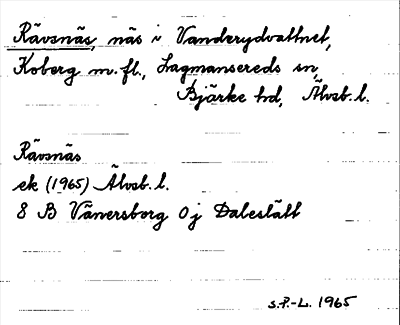 Rävsnäs, näs i Vanderydvattnet,
Koberg m.fl., Lagmansereds sn,
Bjärke hd, Älvsb. l.
Rävsnäs
ek (1965) Älvsb. l.
8 B Vänersborg 0j Daleslätt
s.P.-L. 1965